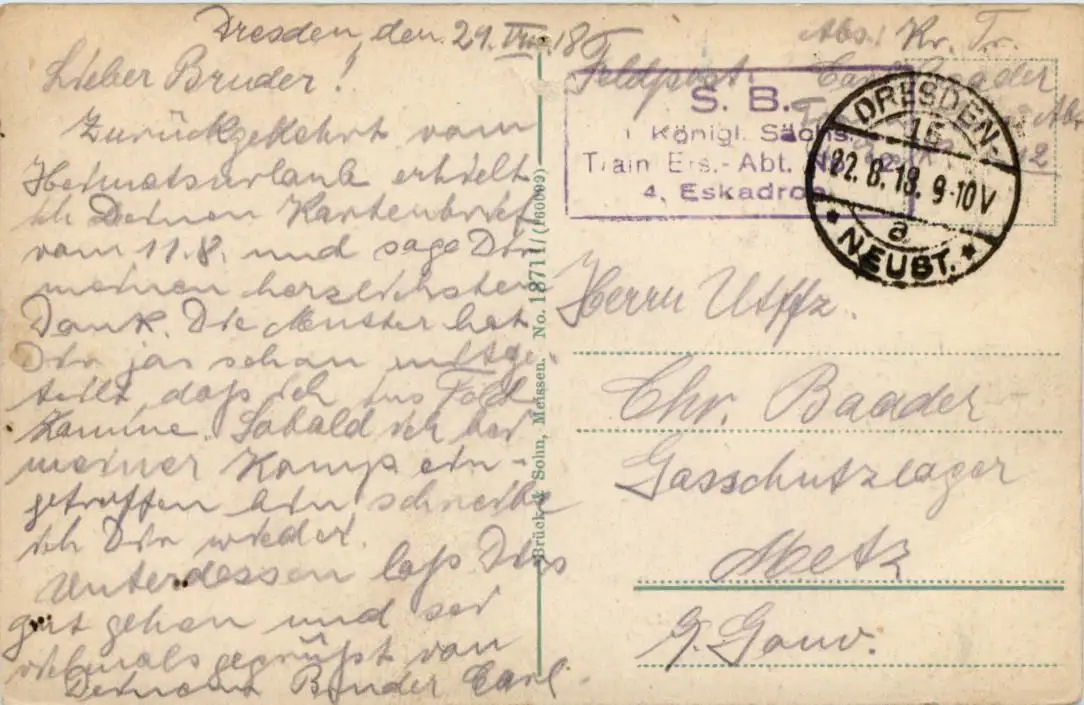 Dresden, den 21. VIII. 18
Lieber Bruder!
Zurückgekehrt vom
Heimatsurlaub erhielt
ich Deinen Kartenbrief
vom 11.8. und sage Dir
meinen herzlichsten
Dank. Die Mutter hat
Dir jas schon mitge-
teilt, daß ich ins Feld
komme. Sobald ich bei
meiner Komp ein-
getroffen bin schreibe
ich Dir wieder.
Unterdessen laß Dirs
gut gehen und sei
vielmals gegrüßt von
Deinem Bruder Carl.
Brück & Sohn, Meissen. No. 18711/(160009)
Feldpost
Abs: Kr. Tr.
Carl Baader
S. B.
Königl. Sächs.
Train Ers.-Abt. No. 12
4. Eskadron
DRESDEN-
15
22.8.18. 9-10V
a
* NEUST. *
Herrn Utffz.
Chr. Baader
Gasschutzlager
Metz
G. Gouv.